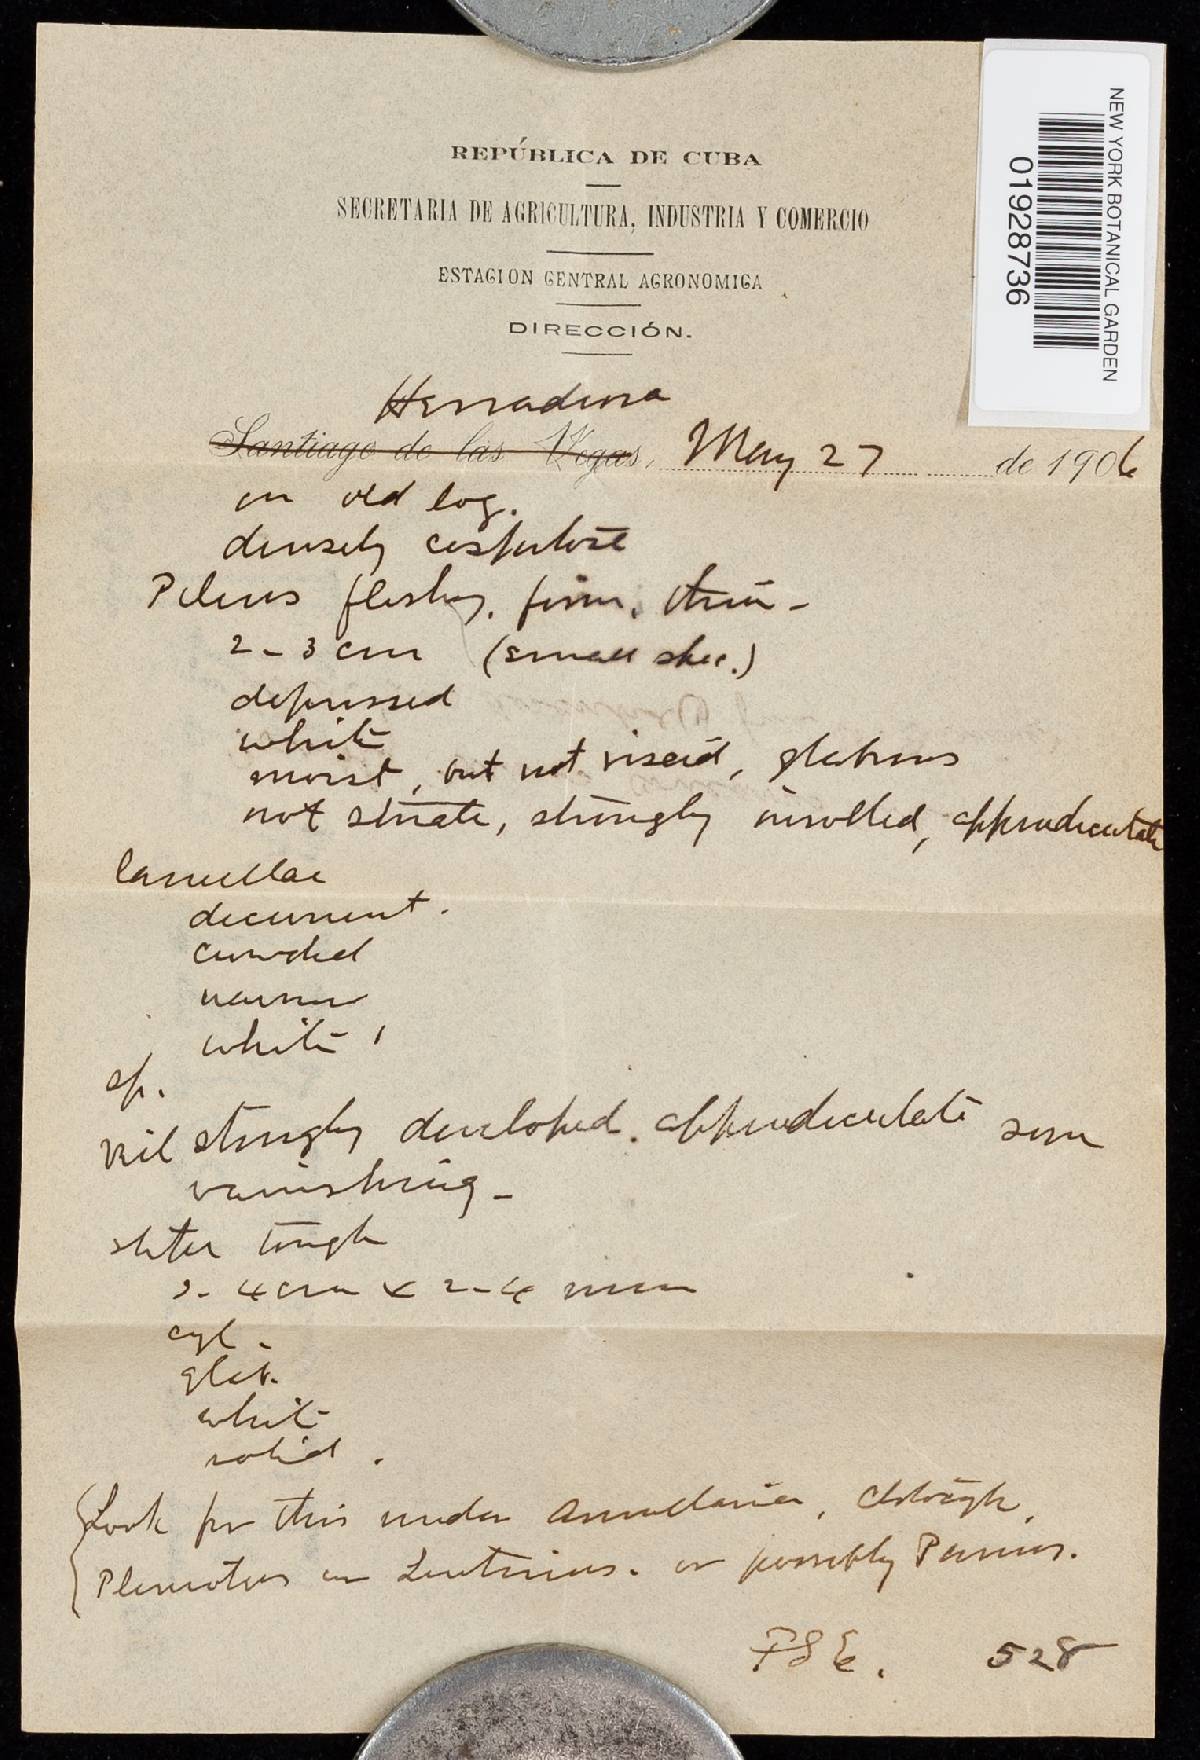 REPÚBLICA DE CUBA
SECRETARIA DE AGRICULTURA, INDUSTRIA Y COMERCIO
ESTACION CENTRAL AGRONOMICA
DIRECCIÓN.
NEW YORK BOTANICAL GARDEN
01928736
Herradura
Santiago de las Vegas, May 27 de 1906
on old log.
densely cespitose
Pileus fleshy, firm, thin -
2-3 cm (small spec.)
depressed
white
moist, but not viscid, glabrous
not striate, strongly inrolled, appendiculate
lamellae
decurrent.
crowded
narrow
white
sp.
veil strongly developed, appendiculate soon
vanishing -
stipe tough
3-4 cm x 2-4 mm
cyl.
glab.
white
solid.
Look for this under Armillaria,
Pleurotus or Lentinus. or possibly Panus.
FSE. 528